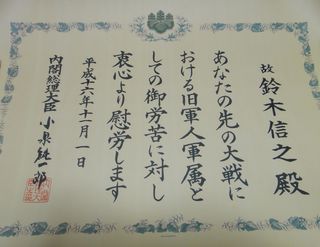 故 鈴木信之殿
あなたの先の大戦に
おける旧軍人軍属と
しての御労苦に対し
衷心より慰労します
平成十六年十一月一日
内閣総理大臣 小泉純一郎